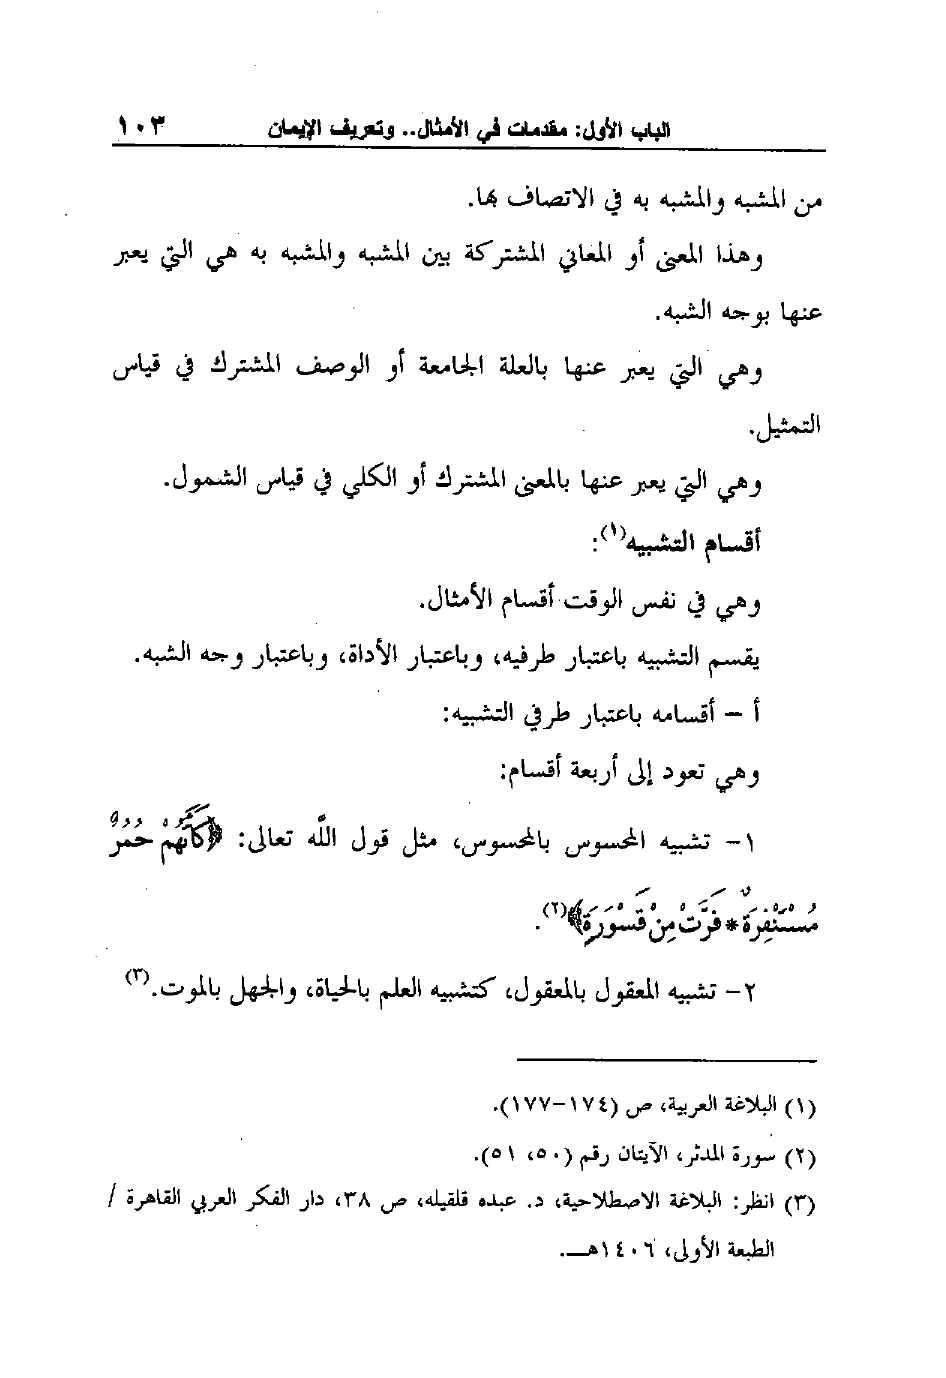 الباب الأول: مقدمات في الأمثال.. وتعريف الإيمان ١٠٣
من المشبه والمشبه به في الاتصاف بها.
وهذا المعنى أو المعاني المشتركة بين المشبه والمشبه به هي التي يعبر
عنها بوجه الشبه.
وهي التي يعبر عنها بالعلة الجامعة أو الوصف المشترك في قياس
التمثيل.
وهي التي يعبر عنها بالمعنى المشترك أو الكلي في قياس الشمول.
أقسام التشبيه(١):
وهي في نفس الوقت أقسام الأمثال.
يقسم التشبيه باعتبار طرفيه، وباعتبار الأداة، وباعتبار وجه الشبه.
أ – أقسامه باعتبار طرفي التشبيه:
وهي تعود إلى أربعة أقسام:
١- تشبيه المحسوس بالمحسوس، مثل قول اللَّه تعالى: ﴿كَأَنَّهُمْ حُمُرٌ
مُسْتَنْفِرَةٌ * فَرَّتْ مِنْ قَسْوَرَةٍ﴾(٢).
٢- تشبيه المعقول بالمعقول، كتشبيه العلم بالحياة، والجهل بالموت.(٣)
(١) البلاغة العربية، ص (١٧٤-١٧٧).
(٢) سورة المدثر، الآيتان رقم (٥٠، ٥١).
(٣) انظر: البلاغة الاصطلاحية، د. عبده قلقيله، ص ٣٨، دار الفكر العربي القاهرة /
الطبعة الأولى، ١٤٠٦هـ.